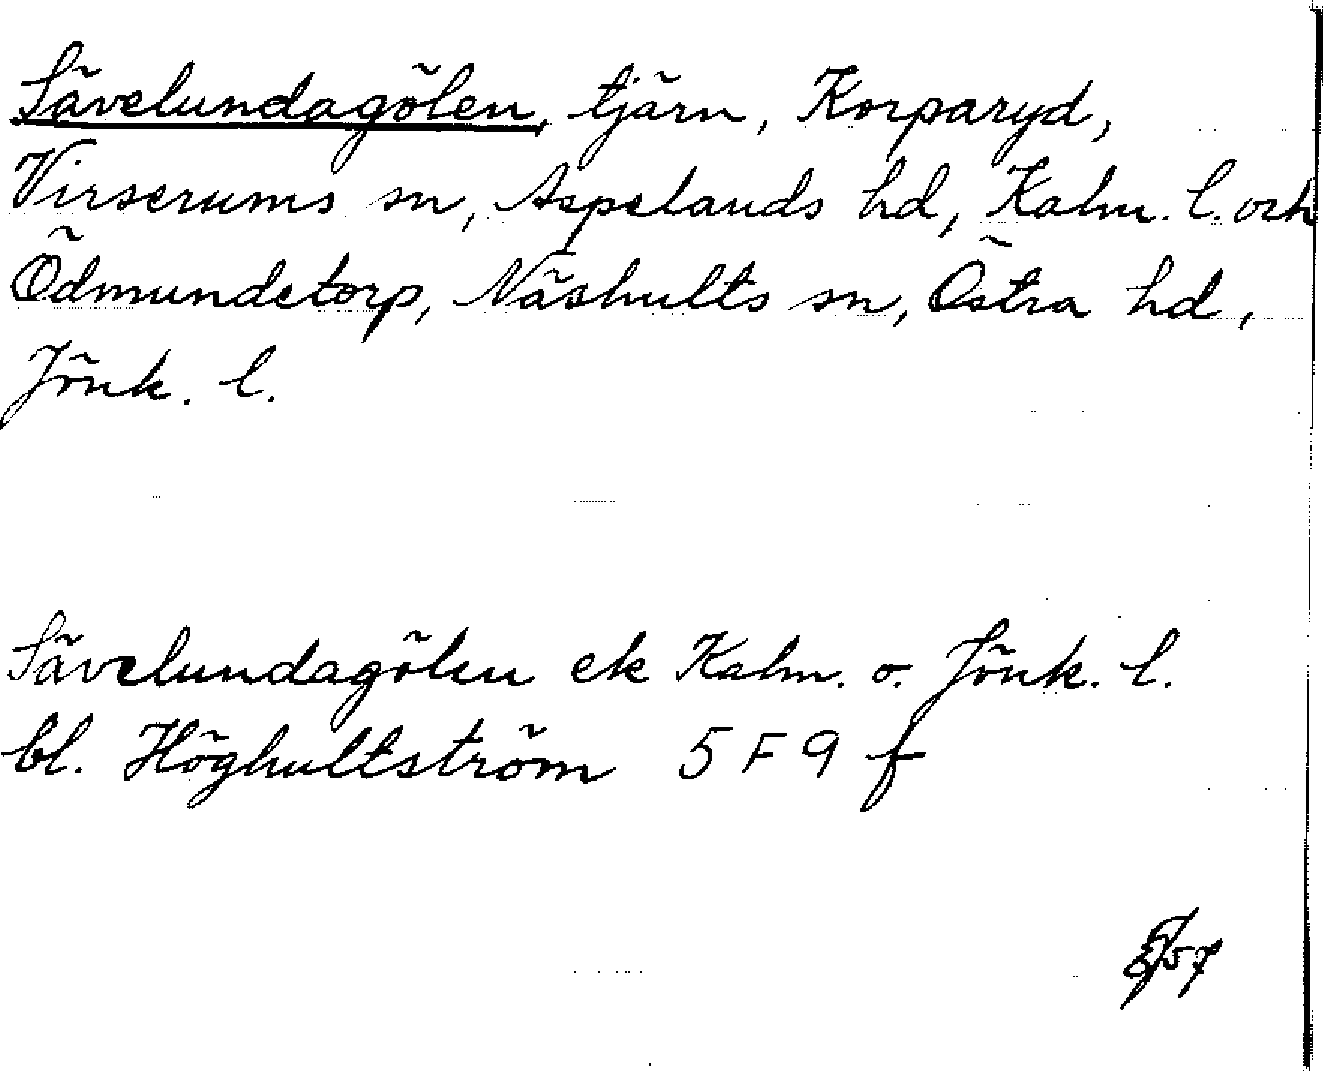 Sävelundagölen, tjärn, Korparyd,
Virserums sn, Aspelands hd, Kalm. l. och
Ödmundetorp, Näshults sn, Östra hd,
Jönk. l.
Sävelundagölen ek Kalm. o. Jönk. l.
bl. Höghultström 5 F 9 f